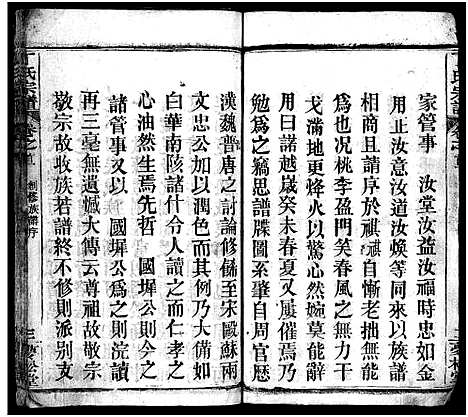 家管事　汝堂汝益汝福時忠如金
用正汝意汝道汝煥等来以族譜
相商且請序於祺祺自慚老拙無以
應也況桃李盈門笑春風之無力干
戈滿地更烽火以驚心然婉莫能
用日諾越歲癸未春夏又屢催焉乃
勉為之竊思譜牒圖系肇自周官歷
漢魏晉唐之討論修飾至宋歐蘇兩
文忠公加以潤色而其例乃大備如
白華南陔諸什令人讀之而仁孝之
心油然生焉先哲　國墀公則令之
諸管事又以　國墀公為之則浣讀
再三毫無遺憾大傳云尊祖故敬宗
敬宗故收族若譜終不修則派別支
丁氏宗譜　卷之首　創修族譜序　三　夢松堂